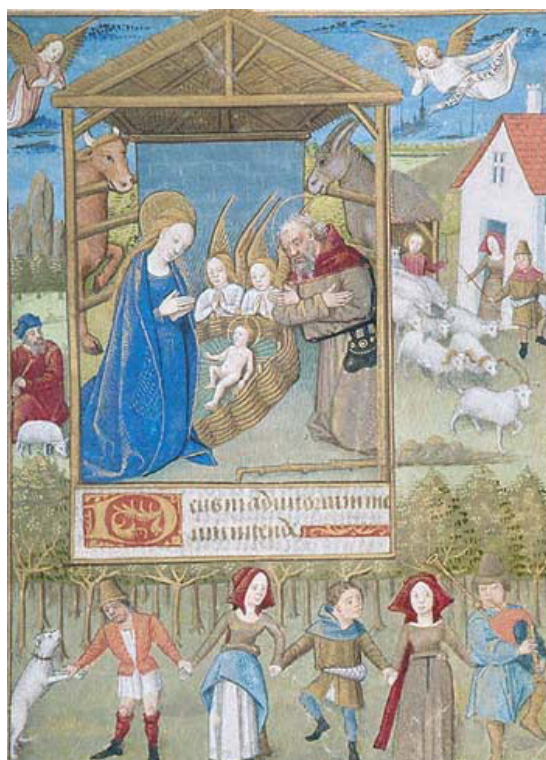 Deus in adiutorium me
um intende